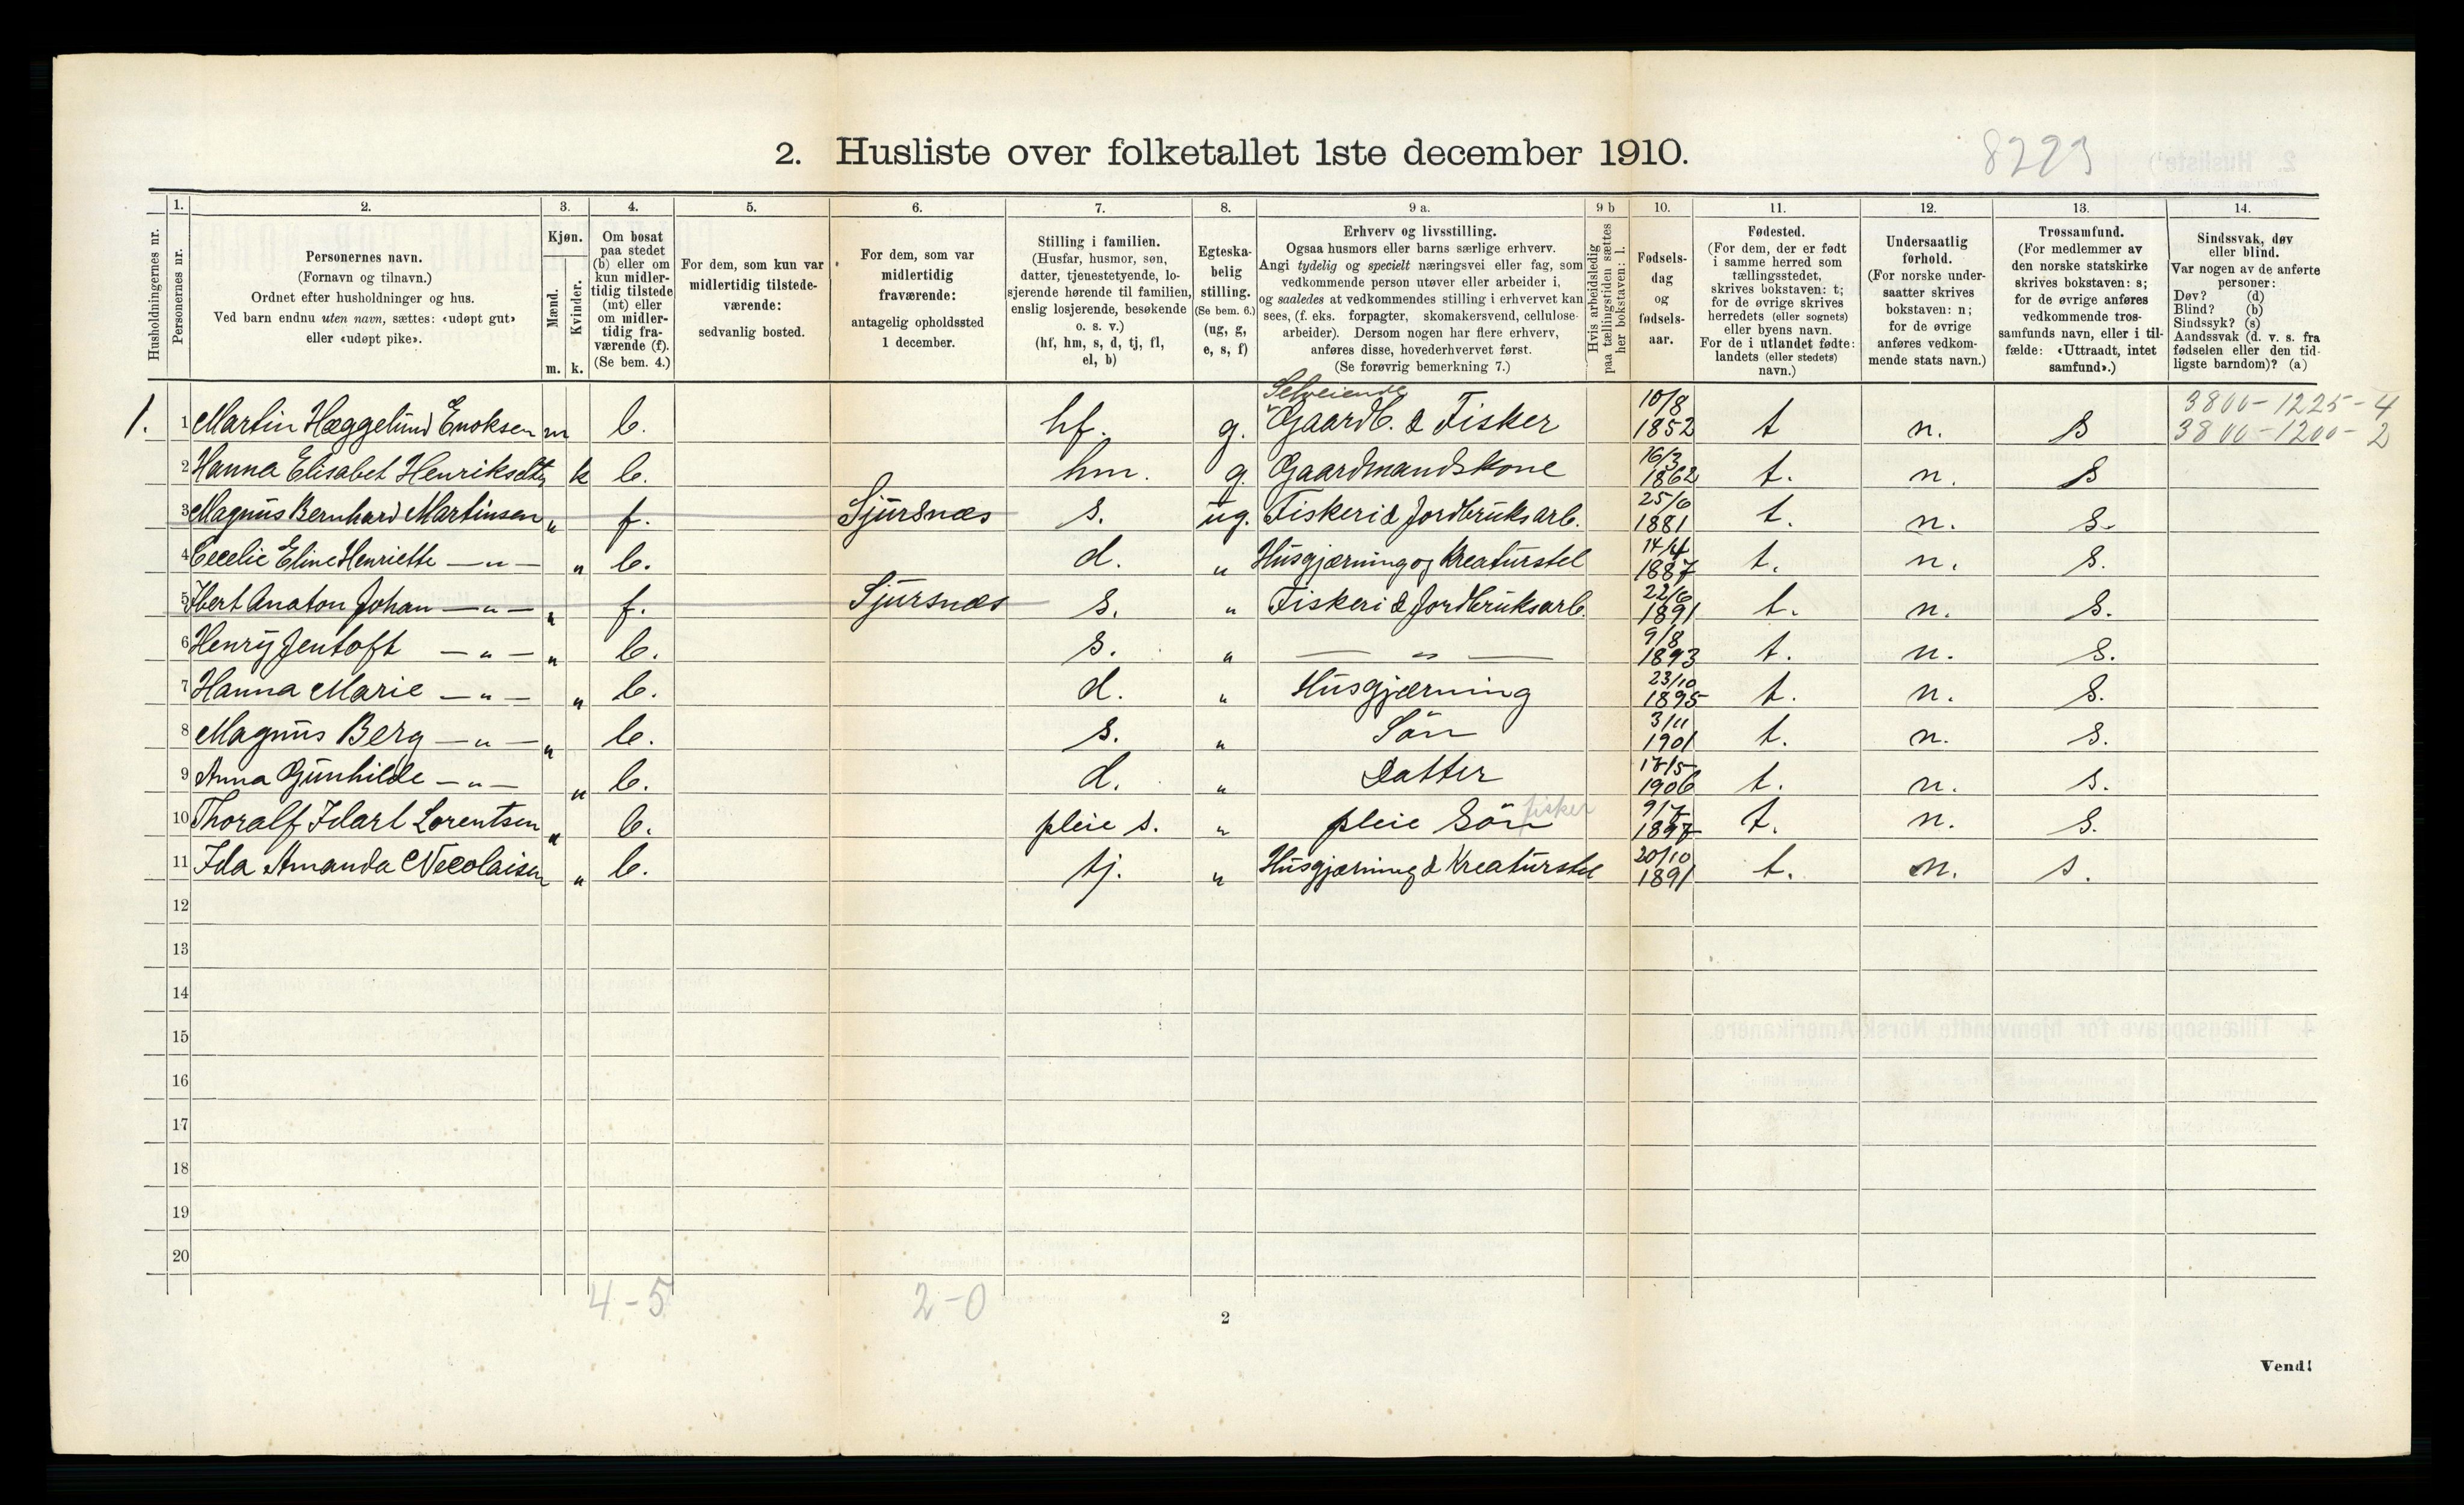 2. Husliste over folketallet 1ste december 1910.
8223
Husholdningernes nr.
1.
Personernes nr.
2.
Personernes navn.
(Fornavn og tilnavn.)
Ordnet efter husholdninger og hus.
Ved barn endnu uten navn, sættes: «udøpt gut»
eller «udøpt pike».
3.
Kjøn.
Mænd.
Kvinder.
m. k.
4.
Om bosat
paa stedet
(b) eller om
kun midler-
tidig tilstede
(mt) eller
om midler-
tidig fra-
værende (f).
(Se bem. 4.)
5.
For dem, som kun var
midlertidig tilstede-
værende:
sedvanlig bosted.
6.
For dem, som var
midlertidig
fraværende:
antagelig opholdssted
1 december.
7.
Stilling i familien.
(Husfar, husmor, søn,
datter, tjenestetyende, lo-
sjerende hørende til familien,
enslig losjerende, besøkende
o. s. v.)
(hf, hm, s, d, tj, fl,
el, b)
8.
Egteska-
belig
stilling.
(Se bem. 6.)
(ug, g,
e, s, f)
9 a.
Erhverv og livsstilling.
Ogsaa husmors eller barns særlige erhverv.
Angi tydelig og specielt næringsvei eller fag, som
vedkommende person utøver eller arbeider i,
og saaledes at vedkommendes stilling i erhvervet kan
sees, (f. eks. forpagter, skomakersvend, cellulose-
arbeider). Dersom nogen har flere erhverv,
anføres disse, hovederhvervet først.
(Se forøvrig bemerkning 7.)
9 b
Hvis arbeidsledig
paa tællingstiden sættes
her bokstaven: l.
10.
Fødsels-
dag
og
fødsels-
aar.
11.
Fødested.
(For dem, der er født
i samme herred som
tællingsstedet,
skrives bokstaven: t;
for de øvrige skrives
herredets (eller sognets)
eller byens navn.
For de i utlandet fødte:
landets (eller stedets)
navn.)
12.
Undersaatlig
forhold.
(For norske under-
saatter skrives
bokstaven: n;
for de øvrige
anføres vedkom-
mende stats navn.)
13.
Trossamfund.
(For medlemmer av
den norske statskirke
skrives bokstaven: s;
for de øvrige anføres
vedkommende tros-
samfunds navn, eller i til-
fælde: «Uttraadt, intet
samfund».)
14.
Sindssvak, døv
eller blind.
Var nogen av de anførte
personer:
Døv? (d)
Blind? (b)
Sindssyk? (s)
Aandssvak (d. v. s. fra
fødselen eller den tid-
ligste barndom)? (a)
Selveiende 10/8 3800-1225-4
1. 1 Martin Hæggelund Enoksen m b. hf. g. Gaardb. & Fisker 1852 t n. s 3800-1200-2
2 Hanna Elisabet Henriksdtr k b. hm. g. Gaardmandskone 16/3 1862 t. n. s
3 Magnus Bernhard Martinsen " f. Sjursnæs s. ug. Fiskeri & Jordbruksarb. 25/6 1881 t. n. s.
4 Cecelie Eline Henriette — " — " b. d. " Husgjærning og Kreaturstel 14/4 1887 t. n. s.
5 Ibert Anaton Johan — " — " f. Sjursnæs s. " Fiskeri & Jordbruksarb. 22/6 1891 t. n. s.
6 Henry Jentoft — " — " b. s. " — " — 9/8 1893 t. n. s.
7 Hanna Marie — " — " b. d. " Husgjærning 23/10 1895 t. n. s.
8 Magnus Berg — " — " b. s. " Sön 3/11 1901 t. n. s.
9 Anna Gunhilde — " — " b. d. " Datter 17/5 1906 t. n. s.
10 Thoralf Idarl Lorentsen " b. pleie s. " pleie Sön fisker 9/7 1897 t. n. s.
11 Ida Amanda Necolaisen " b. tj. " Husgjærning & Kreaturstel 20/10 1891 t. n. s.
12
13
14
15
16
17
18
19
20
4-5 2-0
2
Vend!